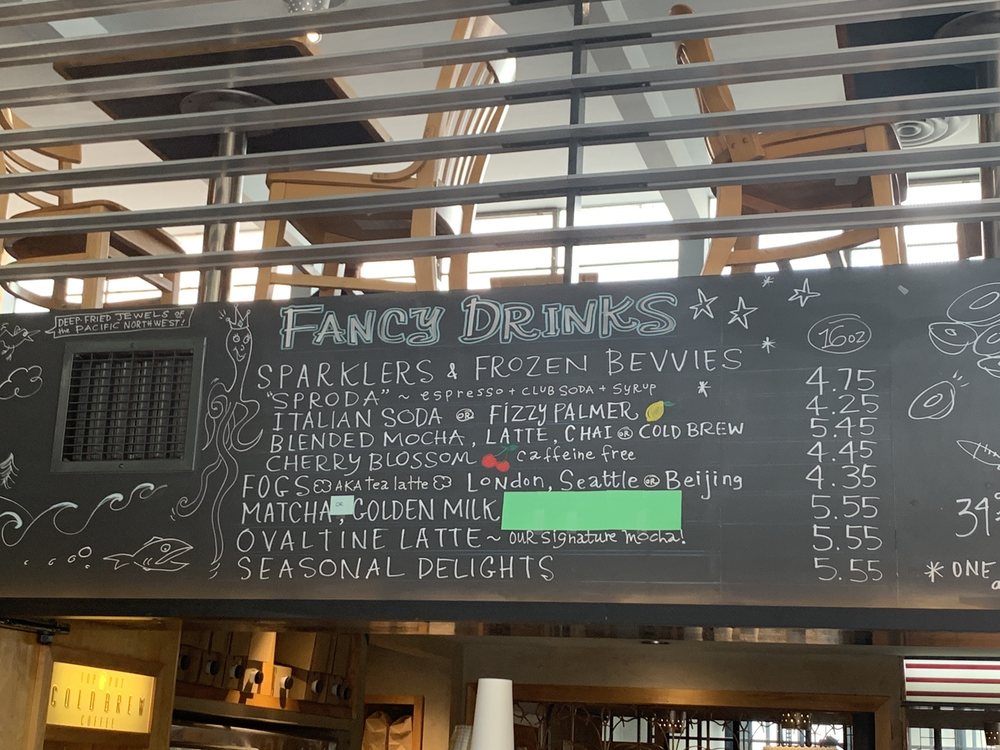 DEEP-FRIED JEWELS of
the PACIFIC NORTHWEST!
FANCY DRINKS
16oz
SPARKLERS & FROZEN BEVVIES
"SPRODA" ~ espresso + CLUB SODA + SYRUP 4.75
ITALIAN SODA OR FIZZY PALMER 4.25
BLENDED MOCHA, LATTE, CHAI OR COLD BREW 5.45
CHERRY BLOSSOM caffeine free 4.45
FOGS AKA tea latte London, Seattle OR Beijing 4.35
MATCHA OR, GOLDEN MILK 5.55
OVALTINE LATTE ~ OUR signature mocha! 5.55
SEASONAL DELIGHTS 5.55
34
* ONE
COLDBREW
COFFEE